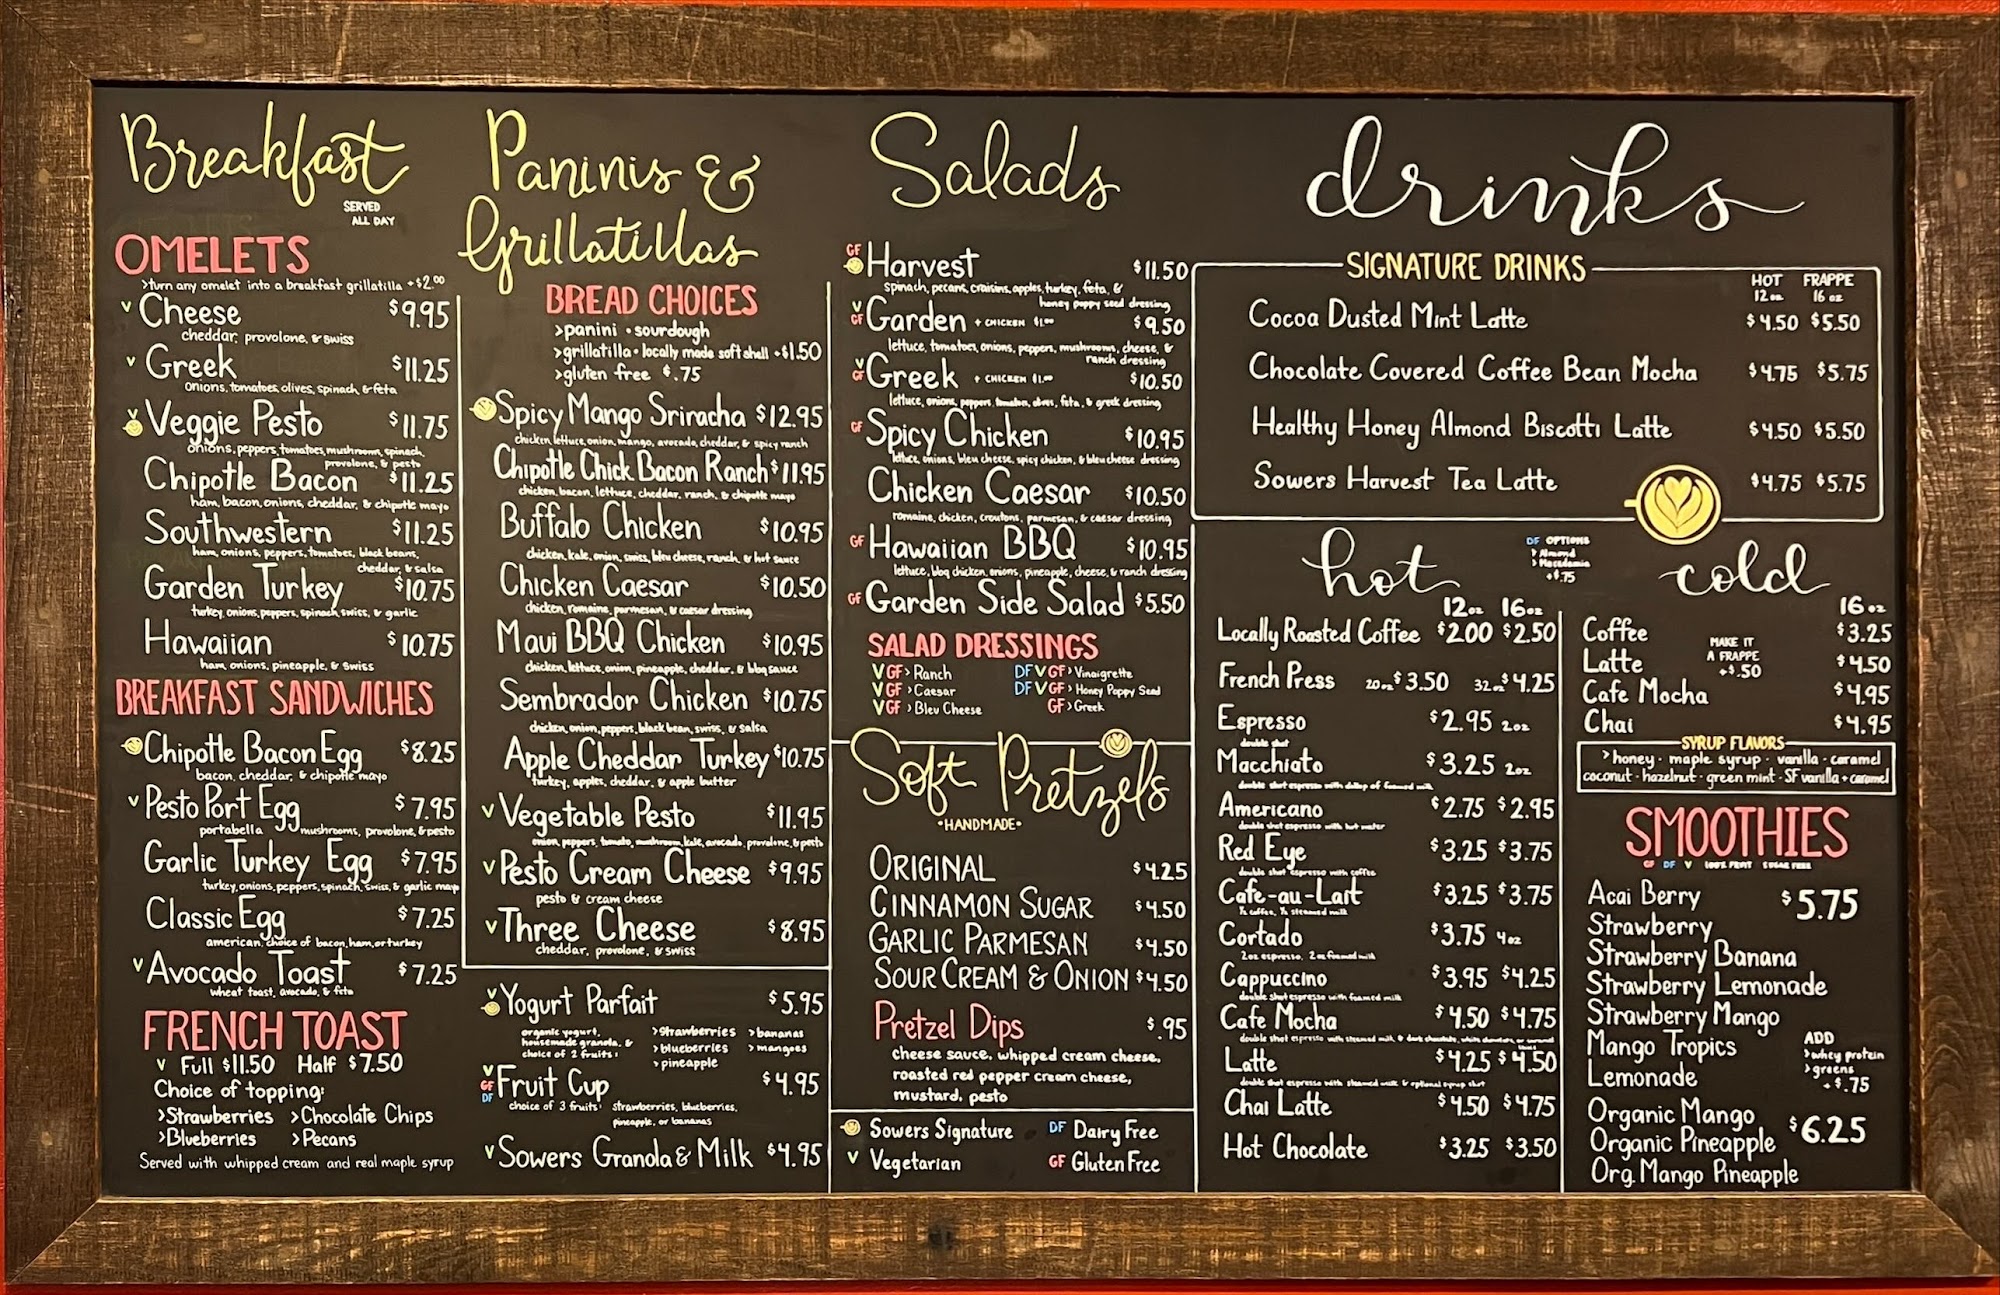 Breakfast
SERVED
ALL DAY
OMELETS
>turn any omelet into a breakfast grillatilla +$2.00
V Cheese $9.95
cheddar, provolone, & swiss
V Greek $11.25
onions, tomatoes, olives, spinach, & feta
V Veggie Pesto $11.75
onions, peppers, tomatoes, mushroom, spinach,
provolone, & pesto
Chipotle Bacon $11.25
ham, bacon, onions, cheddar, & chipotle mayo
Southwestern $11.25
ham, onions, peppers, tomatoes, black beans,
cheddar, & salsa
Garden Turkey $10.75
turkey, onions, peppers, spinach, swiss, & garlic
Hawaiian $10.75
ham, onions, pineapple, & swiss
BREAKFAST SANDWICHES
Chipotle Bacon Egg $8.25
bacon, cheddar, & chipotle mayo
V Pesto Port Egg $7.95
portabella mushrooms, provolone, & pesto
Garlic Turkey Egg $7.95
turkey, onions, peppers, spinach, swiss, & garlic mayo
Classic Egg $7.25
american, choice of bacon, ham, or turkey
V Avocado Toast $7.25
wheat toast, avocado, & feta
FRENCH TOAST
V Full $11.50 Half $7.50
Choice of topping:
>Strawberries >Chocolate Chips
>Blueberries >Pecans
Served with whipped cream and real maple syrup
Paninis &
Grillatillas
BREAD CHOICES
>panini • sourdough
>grillatilla • locally made soft shell +$1.50
>gluten free $.75
Spicy Mango Sriracha $12.95
chicken, lettuce, onion, mango, avocado, cheddar, & spicy ranch
Chipotle Chick Bacon Ranch $11.95
chicken, bacon, lettuce, cheddar, ranch, & chipotle mayo
Buffalo Chicken $10.95
chicken, kale, onion, swiss, bleu cheese, ranch, & hot sauce
Chicken Caesar $10.50
chicken, romaine, parmesan, & caesar dressing
Maui BBQ Chicken $10.95
chicken, lettuce, onion, pineapple, cheddar, & bbq sauce
Sembrador Chicken $10.75
chicken, onion, peppers, black bean, swiss, & salsa
Apple Cheddar Turkey $10.75
turkey, apples, cheddar, & apple butter
V Vegetable Pesto $11.95
onion, peppers, tomato, mushroom, kale, avocado, provolone, & pesto
V Pesto Cream Cheese $9.95
pesto & cream cheese
V Three Cheese $8.95
cheddar, provolone, & swiss
V Yogurt Parfait $5.95
organic yogurt, >strawberries >bananas
housemade granola, & >blueberries >mangoes
choice of 2 fruits: >pineapple
V GF DF Fruit Cup $4.95
choice of 3 fruits: strawberries, blueberries,
pineapple, or bananas
V Sowers Granola & Milk $4.95
Salads
GF Harvest $11.50
spinach, pecans, craisins, apples, turkey, feta, &
honey poppy seed dressing
V GF Garden + CHICKEN $1.00 $9.50
lettuce, tomatoes, onions, peppers, mushrooms, cheese, &
ranch dressing
V GF Greek + CHICKEN $1.00 $10.50
lettuce, onions, peppers, tomatoes, olives, feta, & greek dressing
GF Spicy Chicken $10.95
lettuce, onions, bleu cheese, spicy chicken, & bleu cheese dressing
Chicken Caesar $10.50
romaine, chicken, croutons, parmesan, & caesar dressing
GF Hawaiian BBQ $10.95
lettuce, bbq chicken, onions, pineapple, cheese, & ranch dressing
GF Garden Side Salad $5.50
SALAD DRESSINGS
V GF > Ranch DF V GF > Vinaigrette
V GF > Caesar DF V GF > Honey Poppy Seed
V GF > Bleu Cheese GF > Greek
Soft Pretzels
•HANDMADE•
ORIGINAL $4.25
CINNAMON SUGAR $4.50
GARLIC PARMESAN $4.50
SOUR CREAM & ONION $4.50
Pretzel Dips $.95
cheese sauce, whipped cream cheese,
roasted red pepper cream cheese,
mustard, pesto
Sowers Signature DF Dairy Free
V Vegetarian GF Gluten Free
drinks
SIGNATURE DRINKS
HOT FRAPPE
12 oz 16 oz
Cocoa Dusted Mint Latte $4.50 $5.50
Chocolate Covered Coffee Bean Mocha $4.75 $5.75
Healthy Honey Almond Biscotti Latte $4.50 $5.50
Sowers Harvest Tea Latte $4.75 $5.75
hot
DF OPTIONS
> Almond
> Macadamia
+$.75
12oz 16oz
Locally Roasted Coffee $2.00 $2.50
French Press 20oz $3.50 32oz $4.25
Espresso $2.95 2oz
double shot
Macchiato $3.25 2oz
double shot espresso with dollop of foamed milk
Americano $2.75 $2.95
double shot espresso with hot water
Red Eye $3.25 $3.75
double shot espresso with coffee
Cafe-au-Lait $3.25 $3.75
½ coffee, ½ steamed milk
Cortado $3.75 4oz
2oz espresso, 2oz foamed milk
Cappuccino $3.95 $4.25
double shot espresso with foamed milk
Cafe Mocha $4.50 $4.75
double shot espresso with steamed milk & dark chocolate, white chocolate, or caramel
Latte $4.25 $4.50
double shot espresso with steamed milk & optional syrup shot
Chai Latte $4.50 $4.75
Hot Chocolate $3.25 $3.50
cold
16 oz
Coffee $3.25
Latte $4.50
Cafe Mocha $4.95
Chai $4.95
MAKE IT
A FRAPPE
+$.50
SYRUP FLAVORS
>honey • maple syrup • vanilla • caramel
coconut • hazelnut • green mint • SF vanilla + caramel
SMOOTHIES
GF DF V 100% FRUIT SUGAR FREE
Acai Berry $5.75
Strawberry
Strawberry Banana
Strawberry Lemonade
Strawberry Mango
Mango Tropics
Lemonade
ADD
>whey protein
>greens
+$.75
Organic Mango $6.25
Organic Pineapple
Org. Mango Pineapple